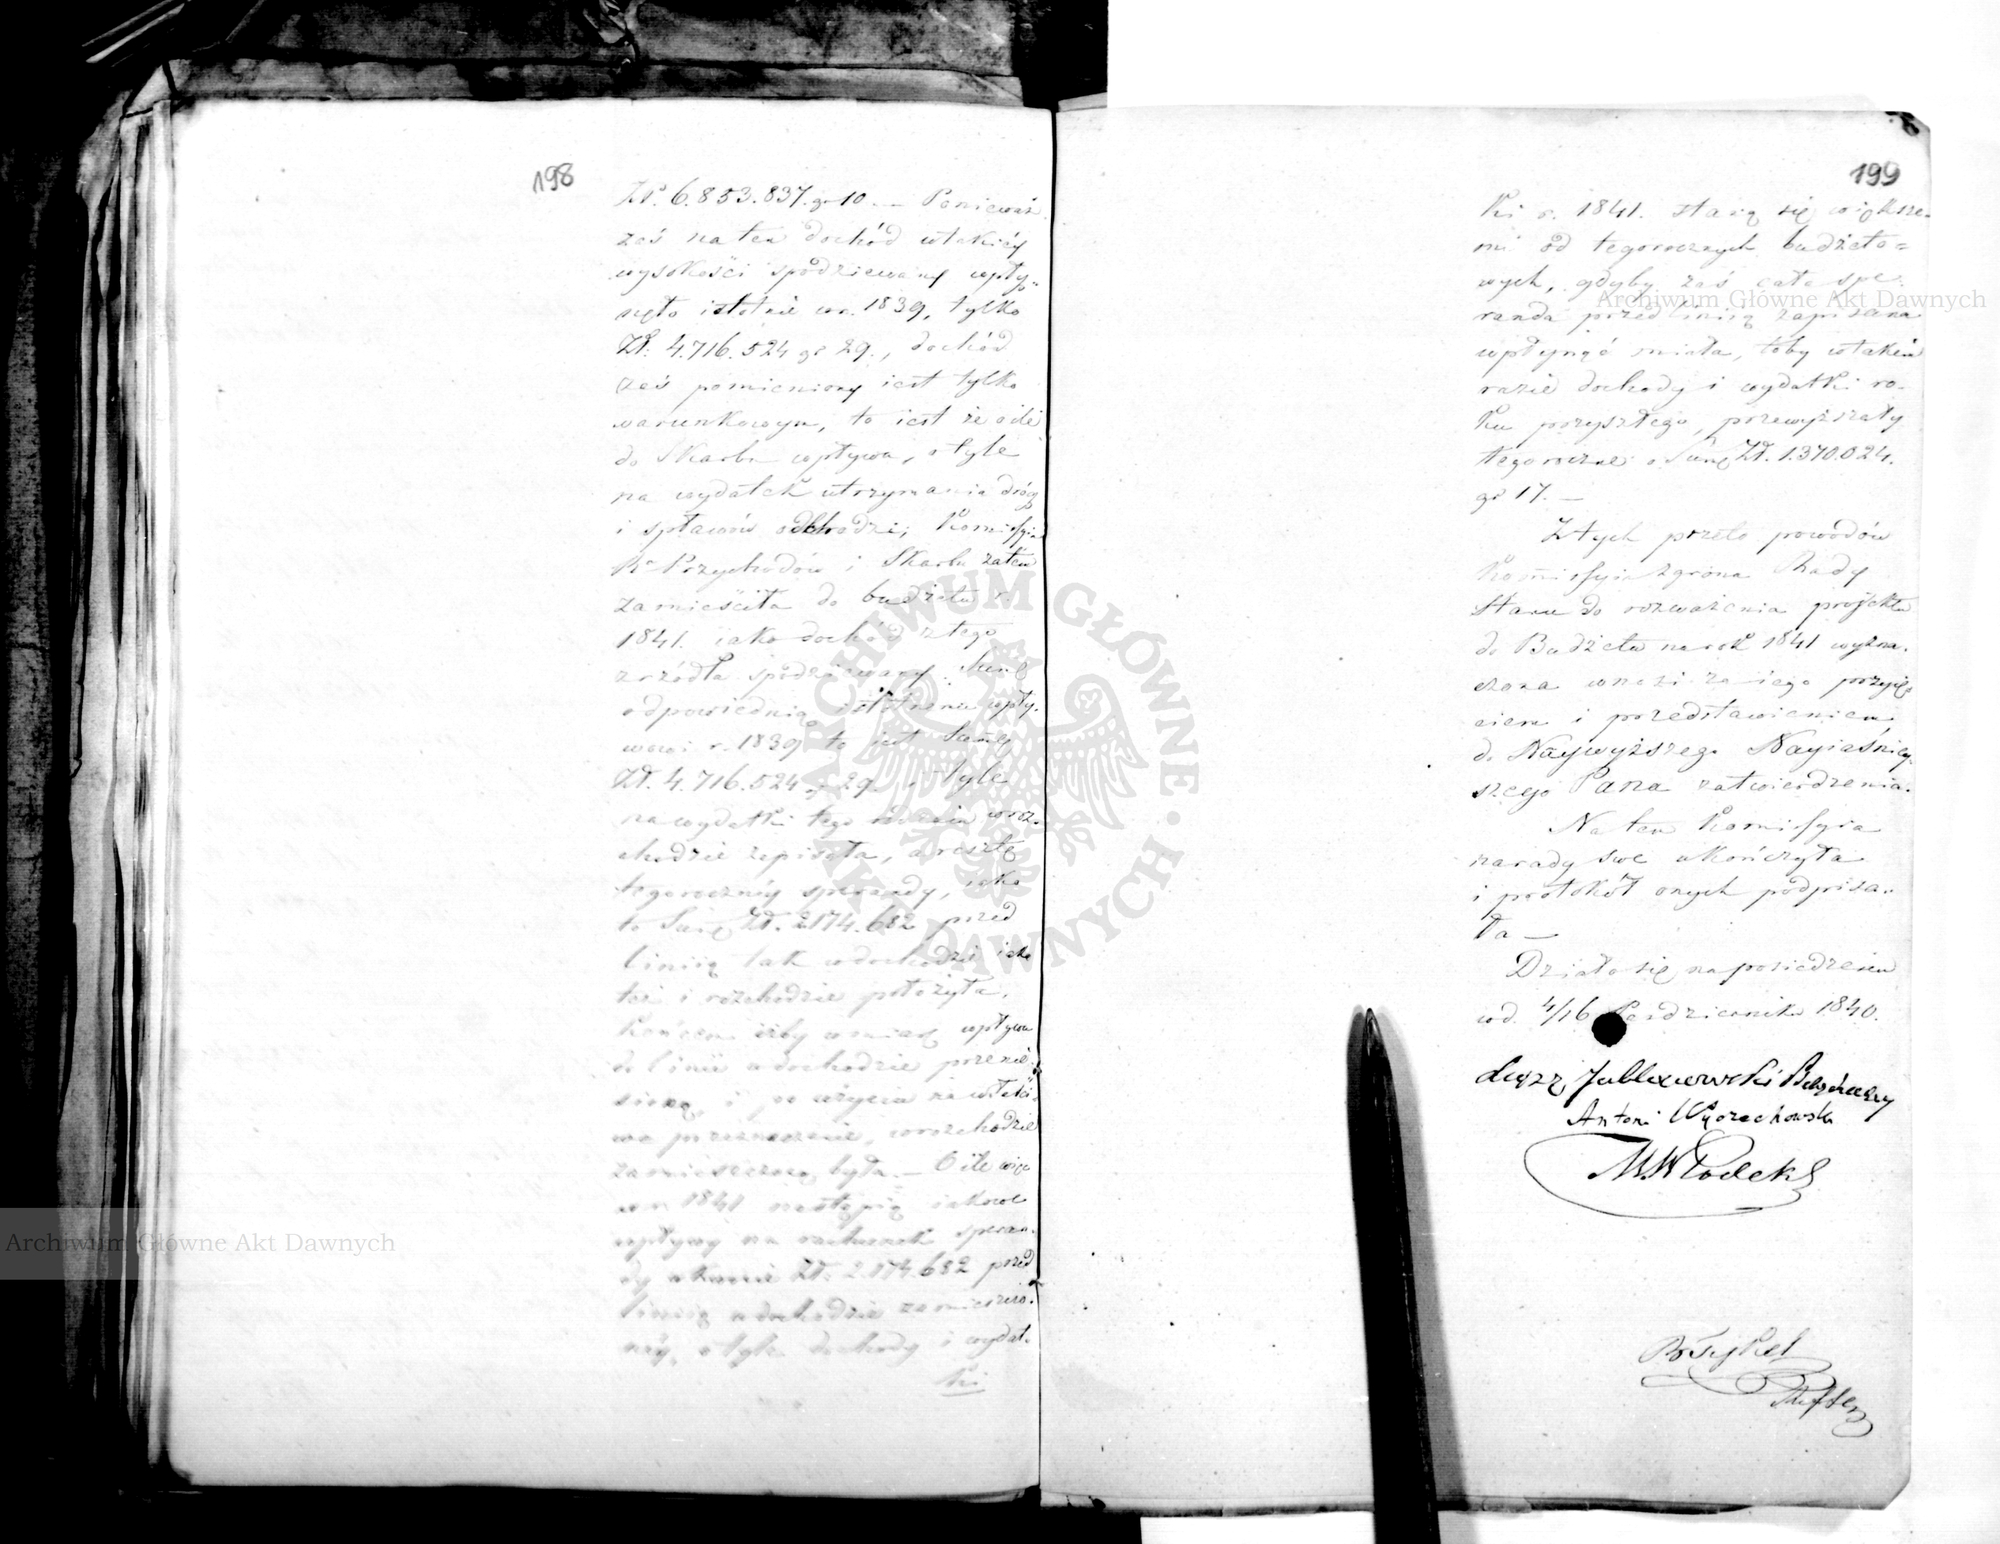 198
Zł. 6.853.837. gr 10. — Ponieważ
zaś na ten dochód w takiéy
wysokości spodziewany wpły-
nęło istotnie w r. 1839, tylko
Zł. 4.716.524 gr 29., dochód
zaś pomieniony iest tylko
warunkowym, to iest że o ile
do Skarbu wpływa, o tyle
na wydatek utrzymania dróg
i spławów odchodzi; Kommissya
R. Przychodów i Skarbu zatem
zamieściła do budżetu r.
1841. iako dochód z tego
zrzódła spodziewany Summę
odpowiednią istotnemu wpły-
wowi r. 1839 to iest Summę
Zł. 4.716.524 gr 29. o tyle
na wydatki tego rodzaiu w roz-
chodzie zapisała, a resztę
tegorocznéy sperandy, iako
to Summę Zł. 2.174.682 przed
liniią tak w dochodzie iako
też i rozchodzie położyła,
końcem iżby w miarę wpływu
do linii w dochodzie przenie-
sioną, i po użyciu na właści-
we przeznaczenie, w rozchodzie
zamieszczoną była. — O ile więc
w r. 1841 nastąpią iakowe
wpływy na rachunek speran-
dy w kwocie Zł. 2.174.682 przed
liniią w dochodzie zamieszczo-
néy, o tyle dochody i wydat-
ki
199
ki r. 1841. staną się większe-
mi od tegorocznych budżeto-
wych, gdyby zaś cała spe-
randa przed liniią zapisana
wpłynąć miała, toby w takim
razie dochody i wydatki ro-
ku przyszłego, przewyższały
tegoroczne o Summę Zł. 1.370.024.
gr 17. —
Z tych przeto powodów
Kommissyia z grona Rady
Stanu do rozważenia projektu
do Budżetu na rok 1841 wyzna-
czona wnosi za iego przyię-
ciem i przedstawieniem
do Naywyższego Nayiaśniey-
szego Pana zatwierdzenia.
Na tem Kommissyia
narady swe ukończyła
i protokół onych podpisa-
ła —
Działo się na posiedzeniu
w d. 4/16 Października 1840.
Antoni Wyczechowski
M. Włodek
Archiwum Główne Akt Dawnych
Archiwum Główne Akt Dawnych
ARCHIWUM GŁÓWNE AKT DAWNYCH